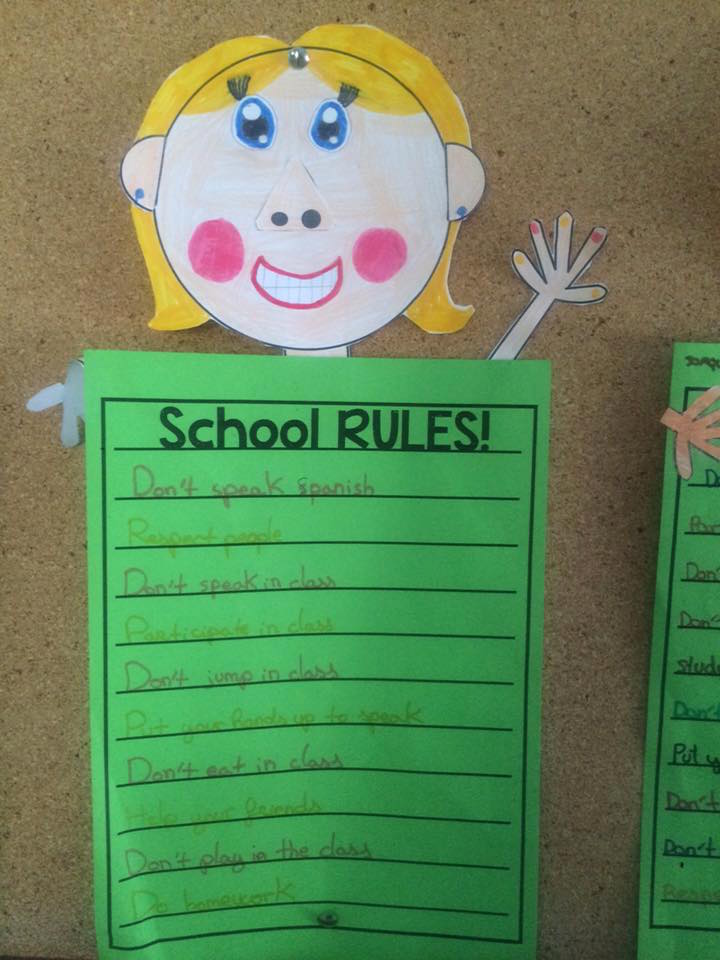 School RULES!
Don't speak spanish
Respect people
Don't speak in class
Participate in class
Don't jump in class
Put your hands up to speak
Don't eat in class
Help your friends
Don't play in the class
Do homework
Don'
Don'
stud
Don't
Put y
Don't
Don't
Resp